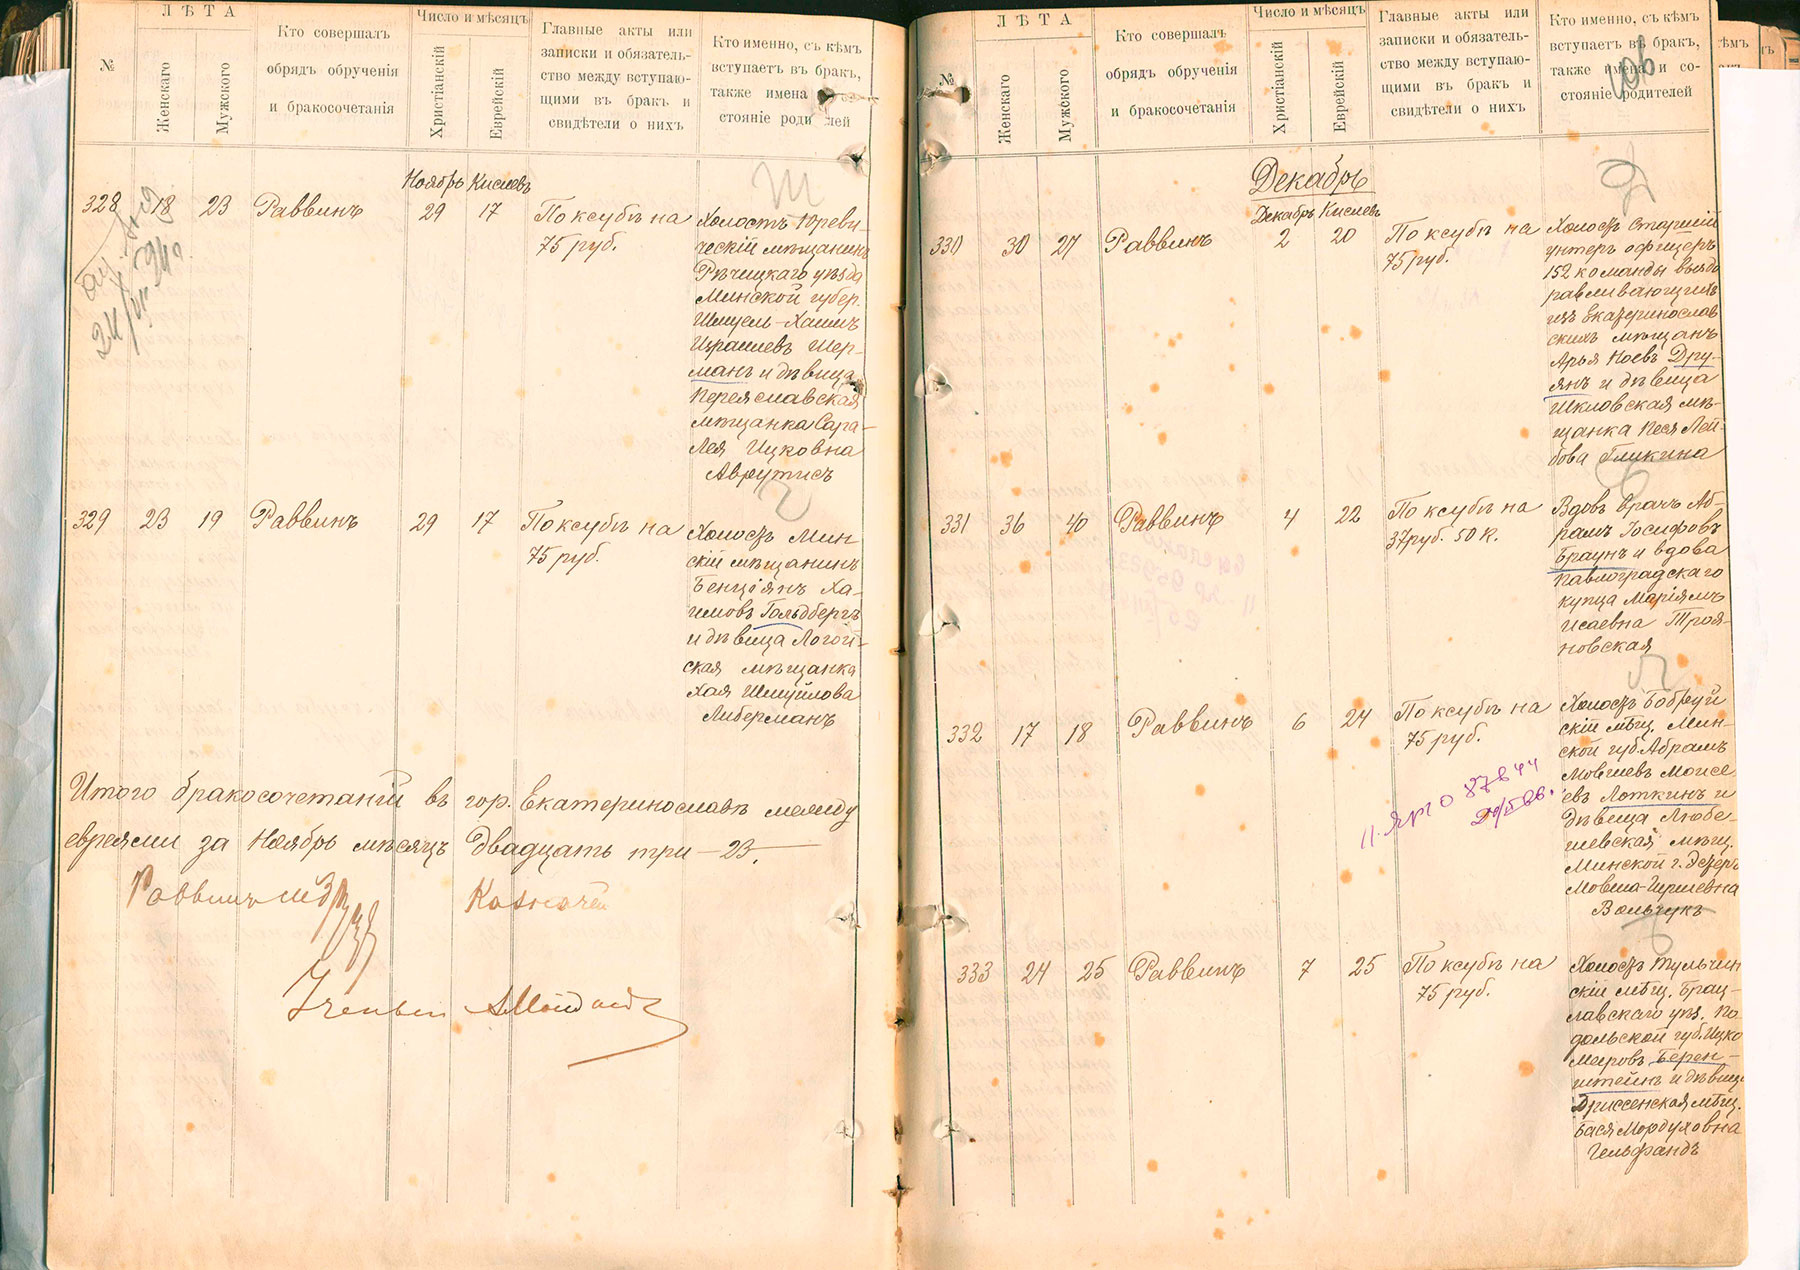 №
ЛѢТА
Женскаго
Мужского
Кто совершалъ
обрядъ обрученія
и бракосочетанія
Число и мѣсяцъ
Христіанскій
Еврейскій
Главные акты или
записки и обязатель-
ство между вступаю-
щими въ бракъ и
свидѣтели о нихъ
Кто именно, съ кѣмъ
вступаетъ въ бракъ,
также имена
стояніе роди лей
Ноябрь Кислевъ
328 18 23 Раввинъ 29 17 По ксубѣ на
75 руб.
Холостъ Юреви-
ческій мѣщанинъ
Рѣчицкаго уѣзда
Минской губер.
Шмуель-Хаимъ
Израилевъ Шер-
манъ и дѣвица
Переяславская
мѣщанка Сара-
Лея Ицковна
Аврутисъ
329 23 19 Раввинъ 29 17 По ксубѣ на
75 руб.
Холостъ Мин-
скій мѣщанинъ
Бенціянъ Ха-
имовъ Гольдбергъ
и дѣвица Логой-
ская мѣщанка
Хая Шмуйлова
Либерманъ
Итого бракосочетаній въ гор. Екатеринославѣ между
евреями за Ноябрь мѣсяцъ двадцать три — 23.
Раввинъ
Казначей
№
ЛѢТА
Женскаго
Мужского
Кто совершалъ
обрядъ обрученія
и бракосочетанія
Число и мѣсяцъ
Христіанскій
Еврейскій
Главные акты или
записки и обязатель-
ство между вступаю-
щими въ бракъ и
свидѣтели о нихъ
Кто именно, съ кѣмъ
вступаетъ въ бракъ,
также имена и со-
стояніе родителей
106
Декабрь
Декабрь Кислевъ
330 30 27 Раввинъ 2 20 По ксубѣ на
75 руб.
Холостъ старшій
унтеръ офицеръ
152 команды выздо
равливающихъ
изъ Екатеринослав
скихъ мѣщанъ
Арья Ноевъ Дру-
янъ и дѣвица
Шкловская мѣ-
щанка Песя Лей-
бова Гликина
331 36 40 Раввинъ 4 22 По ксубѣ на
37 руб. 50 к.
Вдовъ врачъ Аб-
рамъ Іосифовъ
Браунъ и вдова
Павлоградскаго
купца Маріямъ
Исаевна Троя-
новская
332 17 18 Раввинъ 6 24 По ксубѣ на
75 руб.
Холостъ Бобруй
скій мѣщ. Мин-
ской губ. Абрамъ
Мовшевъ Моисе
евъ Лоткинъ и
дѣвица Любе-
шевская мѣщ.
Минской г. Эстеръ
Мовша-Гиршевна
Вольчукъ
333 24 25 Раввинъ 7 25 По ксубѣ на
75 руб.
Холостъ Тульчин
скій мѣщ. Брац-
лавскаго уѣз. По-
дольской губ. Ицко
Мееровъ Берен-
штейнъ и дѣвица
Дриссенская мѣщ.
Бася Мордуховна
Гельфандъ